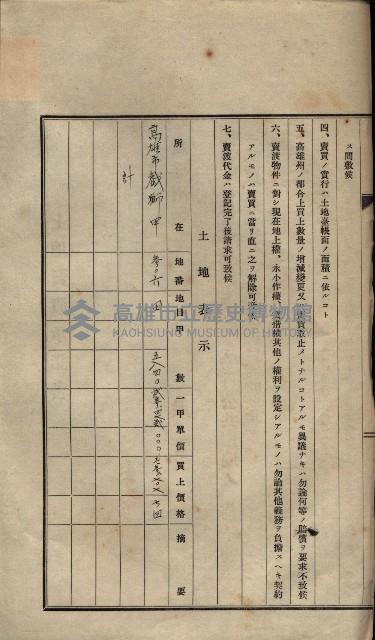 ス間敷候
四、賣買ノ實行ハ土地臺帳面ノ面積ニ依ルコト
五、高雄州ノ都合上買上數量ノ增減變更又ハ賣買取止メトナルコトアルモ異議ナキハ勿論何等ノ賠償ヲ要求不致候
六、賣渡物件ニ對シ現在地上權、永小作權、賃借權其他ノ權利ヲ設定シアルモノハ勿論其他義務ヲ負擔スヘキ契約
アルモノハ賣買ニ當リ直ニ之ヲ解除可致候
七、賣渡代金ハ登記完了後請求可致候
土地表示
所在 地番 地目 甲數 一甲單價 買上價格 摘要
高雄市戲獅甲
計
高雄市立歷史博物館
KAOHSIUNG MUSEUM OF HISTORY